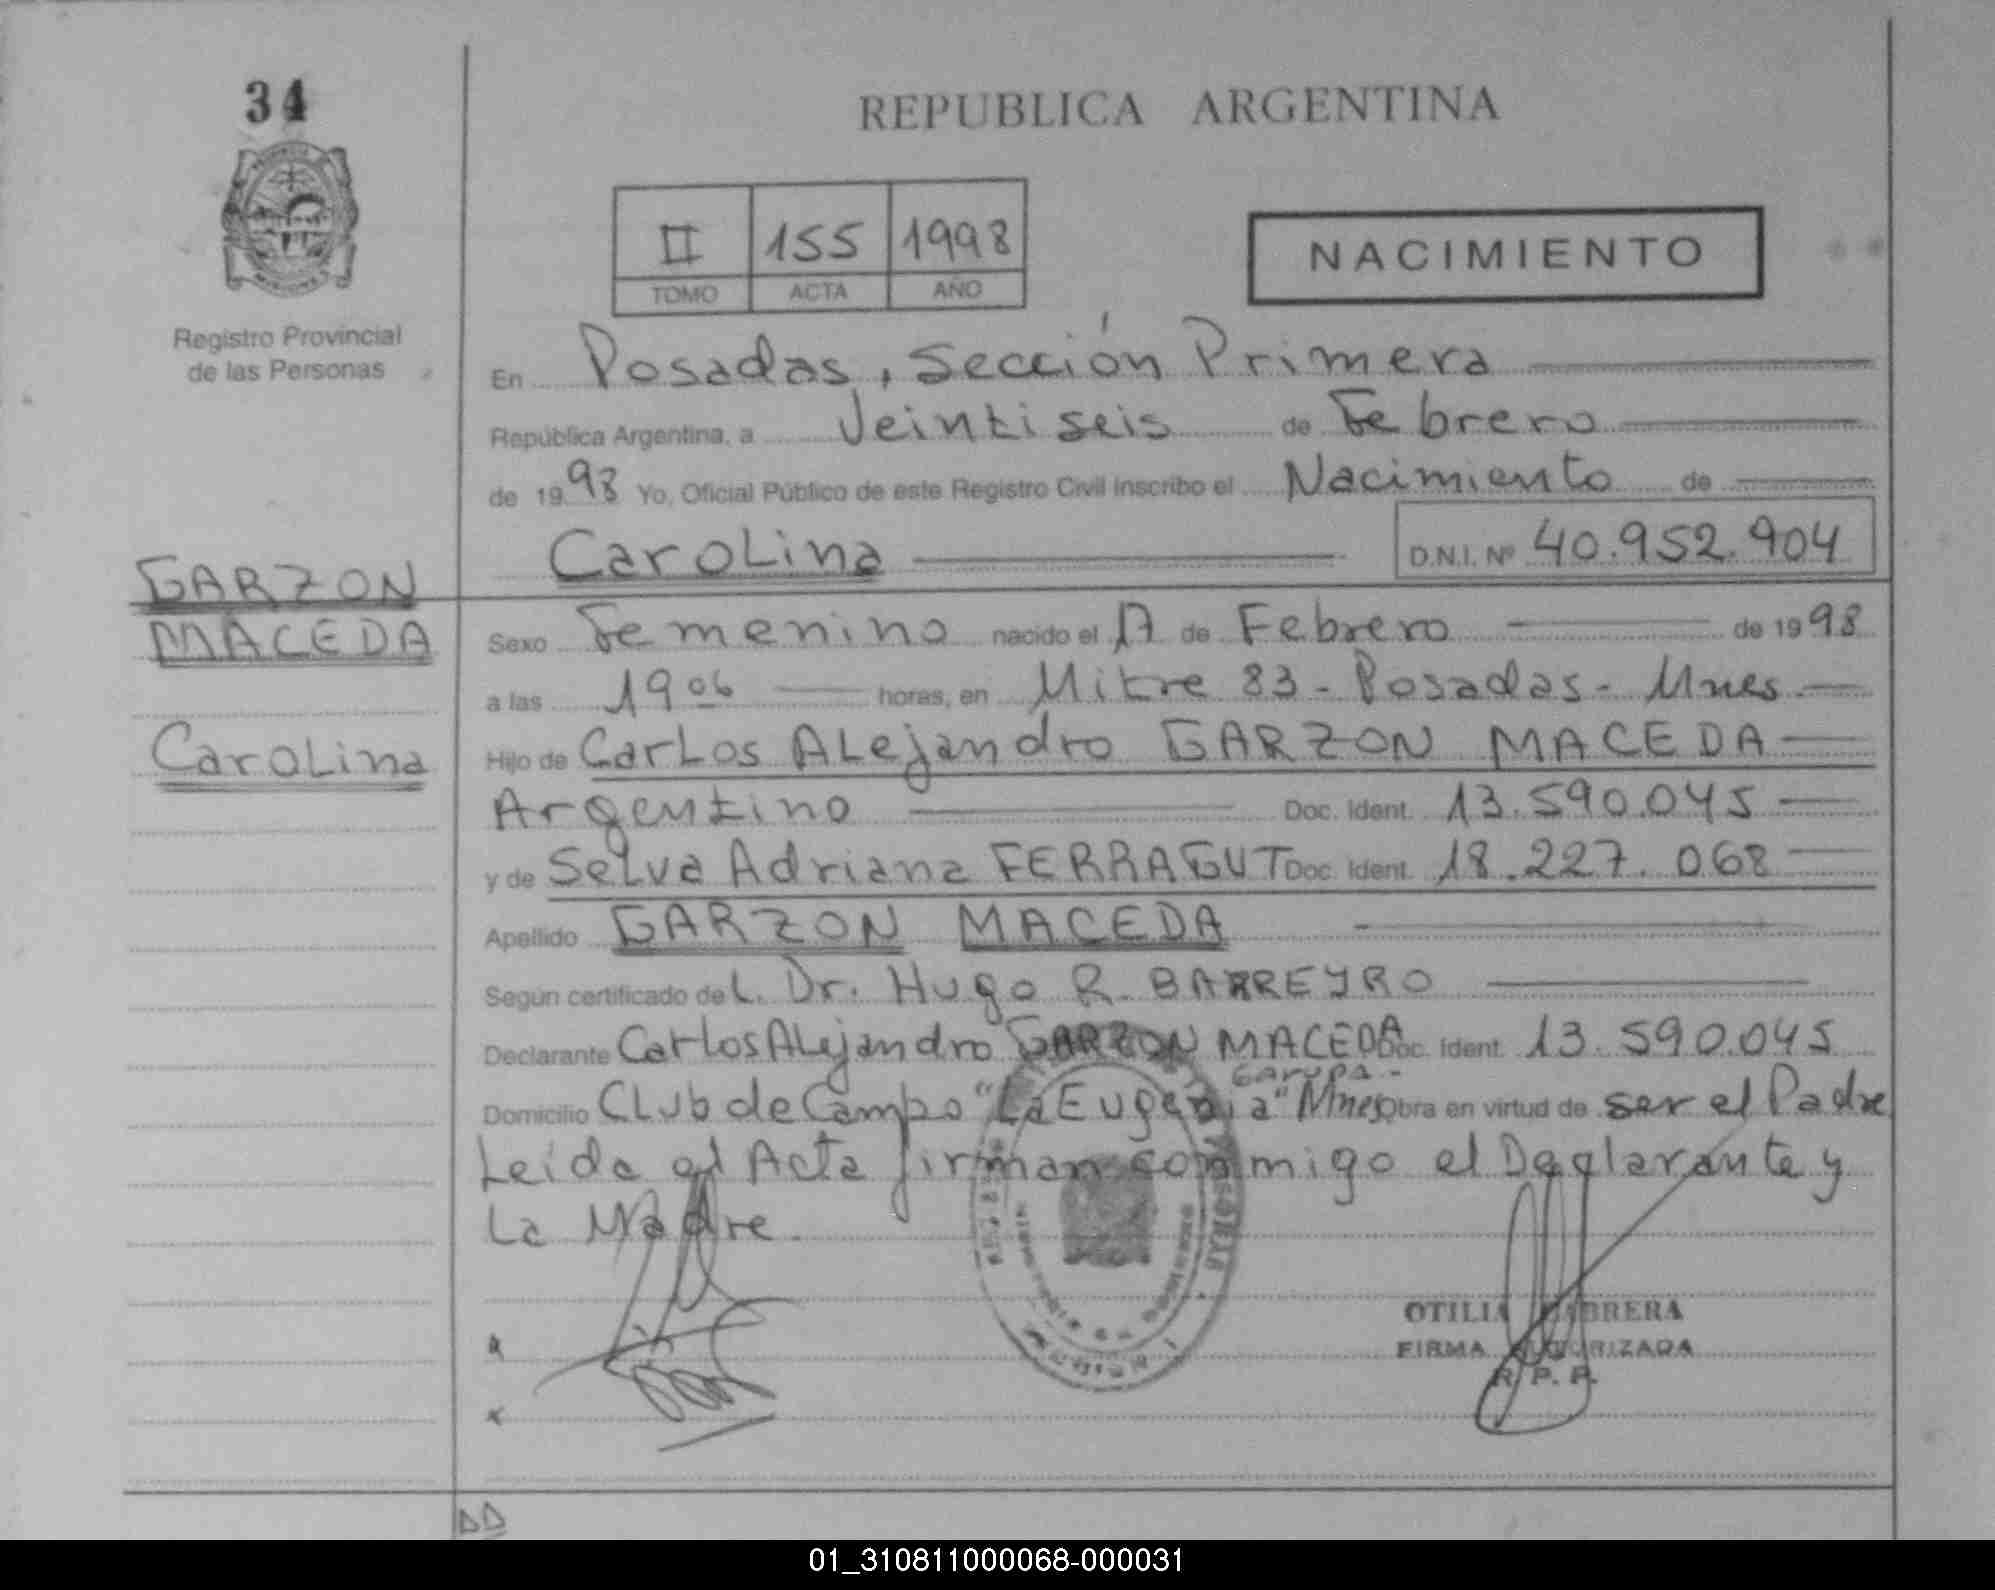 34
REPUBLICA ARGENTINA
II 155 1998
TOMO ACTA AÑO
NACIMIENTO
Registro Provincial
de las Personas
En Posadas, Sección Primera
República Argentina, a Veintiseis de Febrero
de 1998 Yo, Oficial Público de este Registro Civil inscribo el Nacimiento de
Carolina D.N.I. Nº 40.952.904
GARZON
MACEDA
Carolina
Sexo Femenino nacido el 17 de Febrero de 1998
a las 19 06 horas, en Mitre 83 - Posadas - Mnes
Hijo de Carlos Alejandro GARZON MACEDA
Argentino Doc. Ident. 13.590.045
y de Selva Adriana FERRAGUT Doc. Ident. 18.227.068
Apellido GARZON MACEDA
Según certificado del Dr. Hugo R. BARREYRO
Declarante Carlos Alejandro GARZON MACEDA Doc. Ident. 13.590.045
Garupa -
Domicilio Club de Campo "La Eugenia" Mnes Obra en virtud de ser el Padre
Leida el Acta firman conmigo el Declarante y
La Madre.
OTILIA CABRERA
FIRMA AUTORIZADA
R. P. P.
01_310811000068-000031